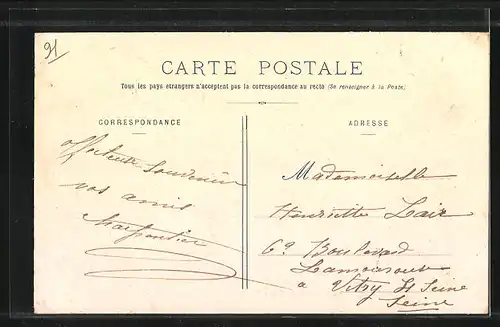 91
CARTE POSTALE
Tous les pays étrangers n'acceptent pas la correspondance au recto (Se renseigner à la Poste)
CORRESPONDANCE
ADRESSE
affectueux Souvenir
vos amis
Charpentier
Mademoiselle
Henriette Lair
69 Boulevard
Lamouroux
a Vitry St Seine
Seine